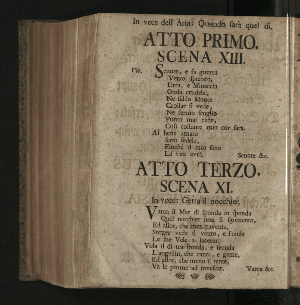 In vece dell' Aria: Quando sarà quel di.
ATTO PRIMO.
SCENA XIII.
Scuote, e fa guerra
Vento spietato,
Urta, e Minaccia
Onda crudele;
Ne saldo Monte
Crollar si vede,
Ne fermo scoglio
Punto mai cede,
Così costante mio cor sarà.
Al bene amato
Sarò fedele,
Finchè il mio seno
La vita avrà. Scuote &c.
ATTO TERZO.
SCENA XI.
In vece: Getta il nocchier.
Varca il Mar di sponda in sponda
Quel nocchier non si sgomenta,
Ed allor, che men paventa,
Sorger vede il vento, e l'onda
Le sue Vele a lacerar.
Vola il di tra fronda, e fronda
L'augellin, che canta, e gente,
Ed allor, che meno il teme,
Va le piume ad invescar. Varca &c.